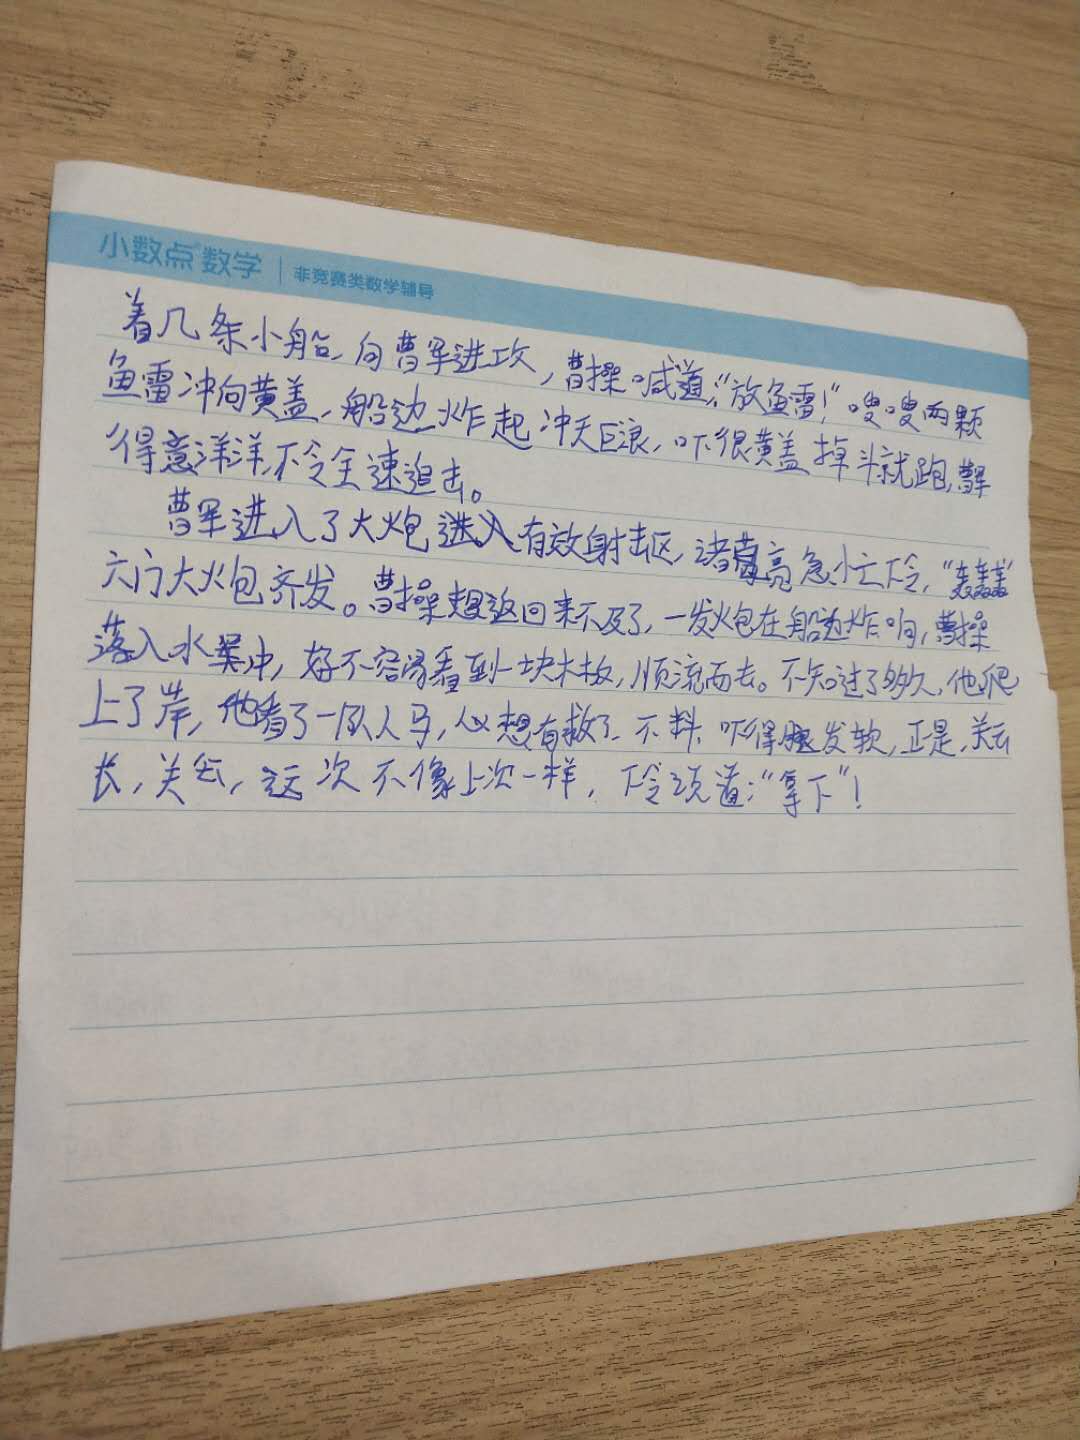 小数点数学 非竞赛类数学辅导
着几条小船,向曹军进攻,曹操喊道:“放鱼雷!”嗖嗖两颗
鱼雷冲向黄盖,船边炸起冲天巨浪,吓很黄盖掉斗就跑,曹军
得意洋洋,下令全速追去。
曹军进入了大炮进入有效射击区,诸葛亮急忙下令,“轰轰轰”
六门大炮齐发。曹操想返回来不及了,一发炮在船边炸响,曹操
落入水中,好不容易看到一块木板,顺流而去。不知过了多久,他爬
上了岸,他看了一队人马,心想有救了、不料、吓得腿发软,正是,关云
长,关公,这次不像上次一样,下令说道:“拿下”!